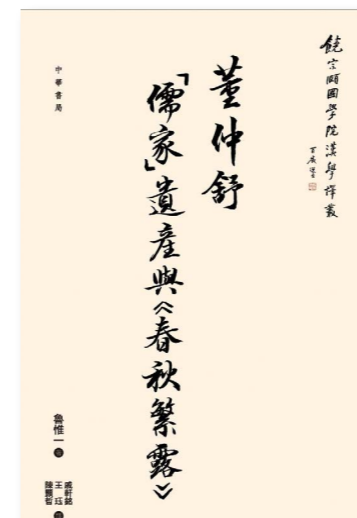 饒宗頤國學院漢學譯叢
董仲舒
「儒家」遺產與《春秋繁露》
中華書局
魯惟一 著
戚軒銘
王珏
陳顥哲